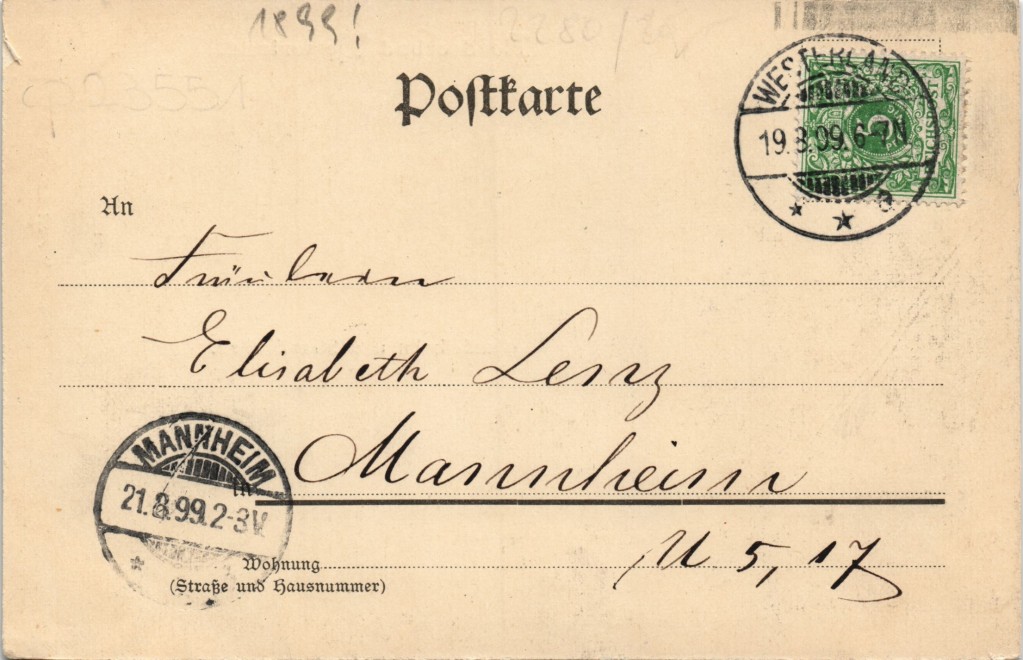 1899!
2280/29
23551
Postkarte
WESTERLAND
19.8.99.6-7N
a
5
An
Fräulein
Elisabeth Lenz
MANNHEIM
in Mannheim
21.8.99.2-3V.
U 5, 17
Wohnung
(Straße und Hausnummer)